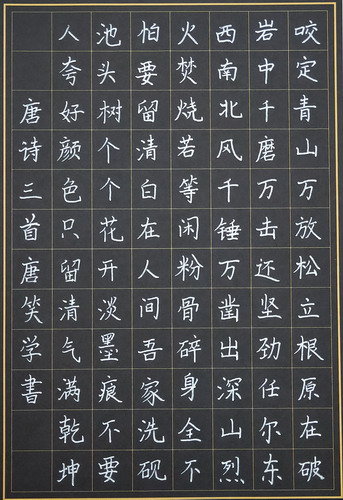 咬定青山万放松立根原在破
岩中千磨万击还坚劲任尔东
西南北风千锤万凿出深山烈
火焚烧若等闲粉骨碎身全不
怕要留清白在人间吾家洗砚
池头树个个花开淡墨痕不要
人夸好颜色只留清气满乾坤
唐诗三首唐笑学書